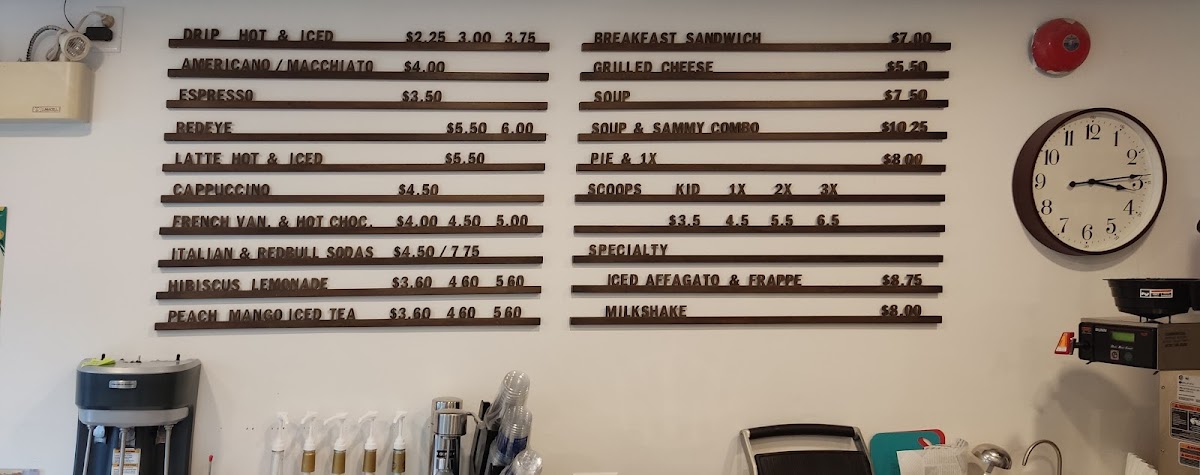 DRIP HOT & ICED $2.25 3.00 3.75
AMERICANO / MACCHIATO $4.00
ESPRESSO $3.50
REDEYE $5.50 6.00
LATTE HOT & ICED $5.50
CAPPUCCINO $4.50
FRENCH VAN. & HOT CHOC. $4.00 4.50 5.00
ITALIAN & REDBULL SODAS $4.50 / 7 75
HIBISCUS LEMONADE $3.60 4 60 5 60
PEACH MANGO ICED TEA $3.60 4 60 5 60
BREAKFAST SANDWICH $7.00
GRILLED CHEESE $5.50
SOUP $7 50
SOUP & SAMMY COMBO $10 25
PIE & 1X $8 00
SCOOPS KID 1X 2X 3X
$3.5 4.5 5.5 6.5
SPECIALTY
ICED AFFAGATO & FRAPPE $8.75
MILKSHAKE $8.00
12
1
2
3
4
5
6
7
8
9
10
11